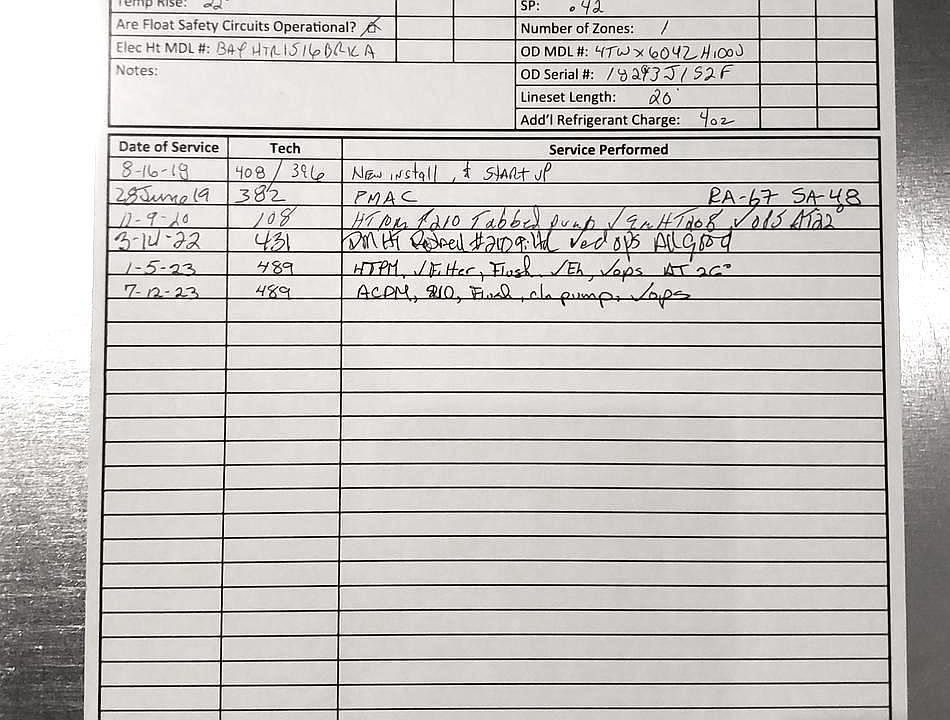 Temp Rise: 22°
SP: .42
Are Float Safety Circuits Operational?
Number of Zones: 1
Elec Ht MDL #: BAYHTR1516BRKA
OD MDL #: 4TWX6042H1000J
Notes:
OD Serial #: 18293J1S2F
Lineset Length: 20'
Add'l Refrigerant Charge: 4oz
Date of Service Tech Service Performed
8-16-18 408 / 396 NEW install, & START UP
28June19 382 PMAC RA-67 SA-48
108 HTPM Tabbed pump √ops ΔT22°
3-14-22 431 PMHt ops All good
1-5-23 489 HTPM, √Filter, Flush, √Eh, √ops ΔT 26°
7-12-23 489 ACPM, Flush, cln pump, √ops